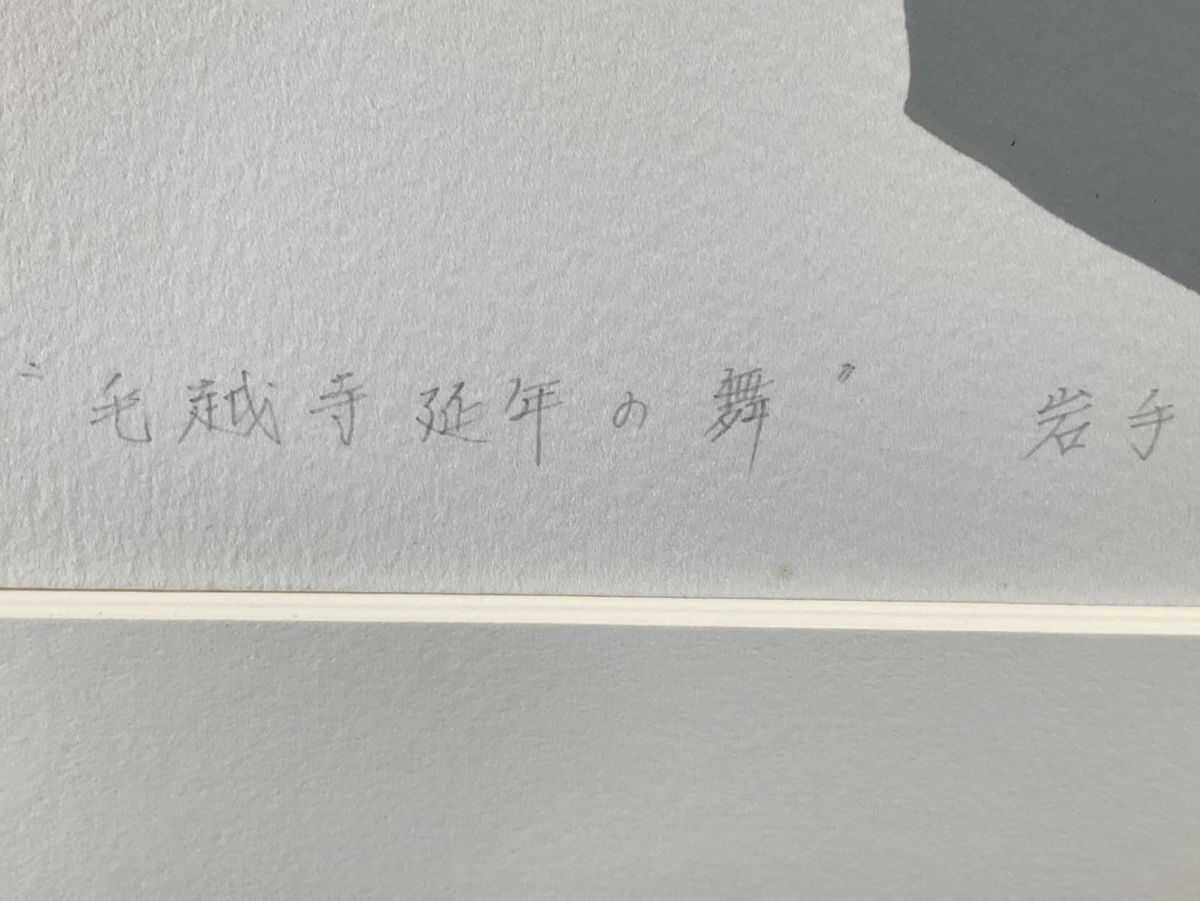 "毛越寺延年の舞" 岩手